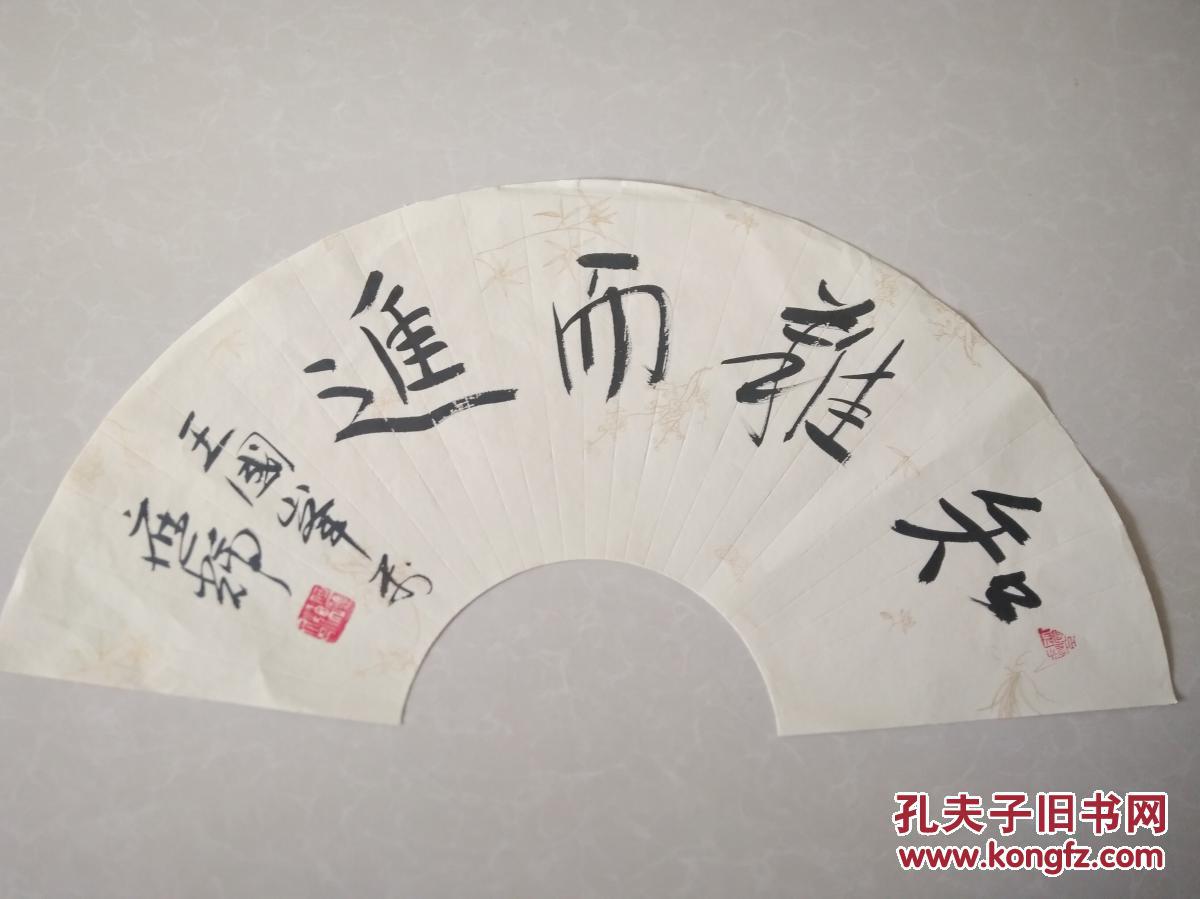 知難而進
王國峯書
孔夫子旧书网
www.kongfz.com